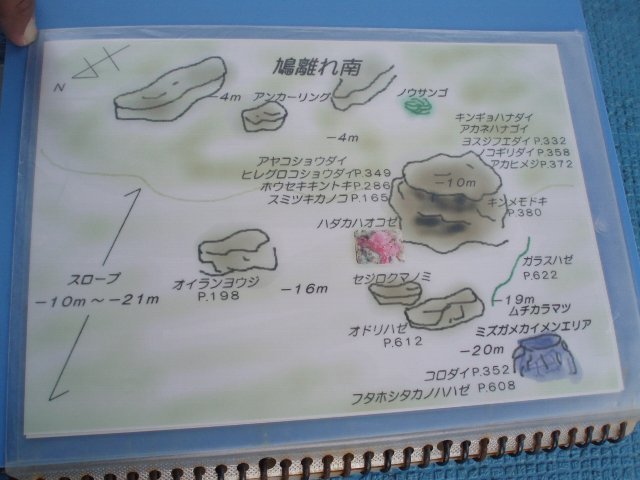 鳩離れ南
N
-4m
アンカーリング
ノウサンゴ
-4m
キンギョハナダイ
アカネハナゴイ
ヨスジフエダイ P.332
ノコギリダイ P.358
アカヒメジ P.372
アヤコショウダイ
ヒレグロコショウダイ P.349
ホウセキキントキ P.286
スミツキカノコ P.165
-10m
キンメモドキ
P.380
ハダカハオコゼ
スロープ
-10m～-21m
オイランヨウジ
P.198
-16m
セジロクマノミ
ガラスハゼ
P.622
-19m
ムチカラマツ
オドリハゼ
P.612
ミズガメカイメンエリア
-20m
コロダイ P.352
フタホシタカノハハゼ P.608